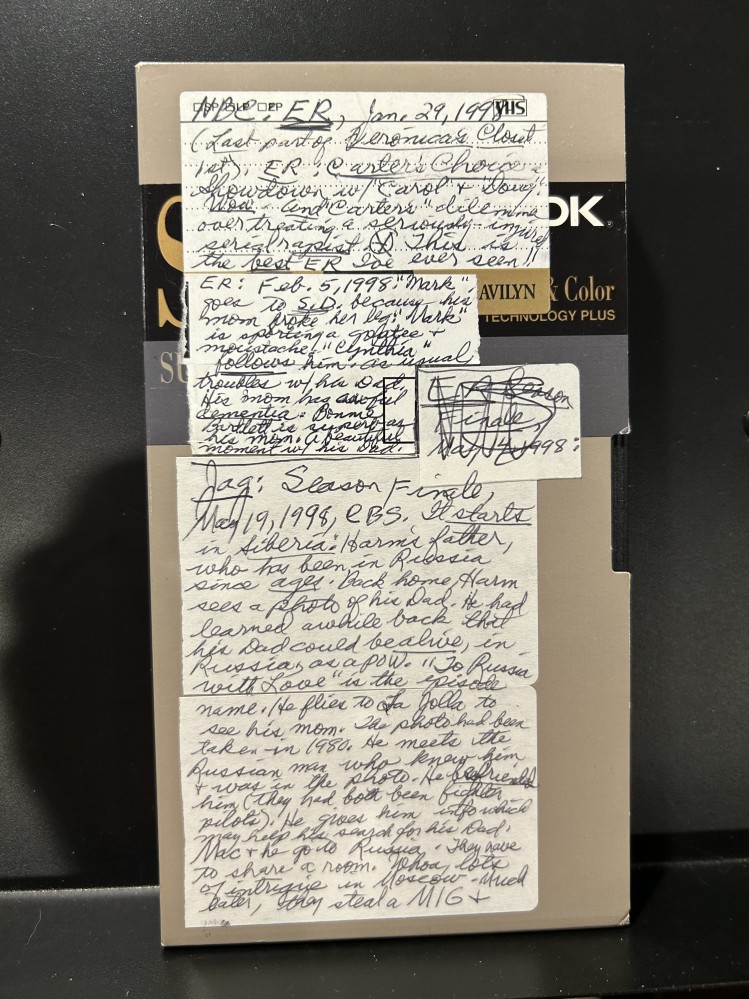 □SP □SLP □EP
VHS
NBC: ER, Jan. 29, 1998
(Last part of Veronica's Closet
1st). ER: Carter's Choice.
Showdown w/ "Carol" + "Doug".
Wow. And "Carter's" dilemma
over treating a seriously injured
serial rapist. This is
the best ER I've ever seen!!
ER: Feb. 5, 1998: "Mark"
goes to S.D. because his
mom broke her leg. "Mark"
is sporting a goatee +
moustache. "Cynthia"
follows him. As usual
troubles w/ his Dad.
His mom has awful
dementia. Bonnie
Bartlett is superb as
his mom. A beautiful
moment w/ his Dad.
S
OK
AVILYN & Color
TECHNOLOGY PLUS
SU
ER Season
Finale,
May 14, 1998:
Jag: Season Finale,
May 19, 1998, CBS. It starts
in Siberia: Harm's father,
who has been in Russia
since ages. Back home, Harm
sees a photo of his Dad. He had
learned awhile back that
his Dad could be alive, in
Russia, as a POW. "To Russia
with Love" is the episode
name. He flies to La Jolla to
see his mom. The photo had been
taken in 1980. He meets the
Russian man who knew him
+ was in the photo. He befriends
him (they had both been fighter
pilots). He gives him info which
may help his search for his Dad.
Mac + he go to Russia. They have
to share a room. Whoa, lots
of intrigue in Moscow. Much
later, they steal a MIG +